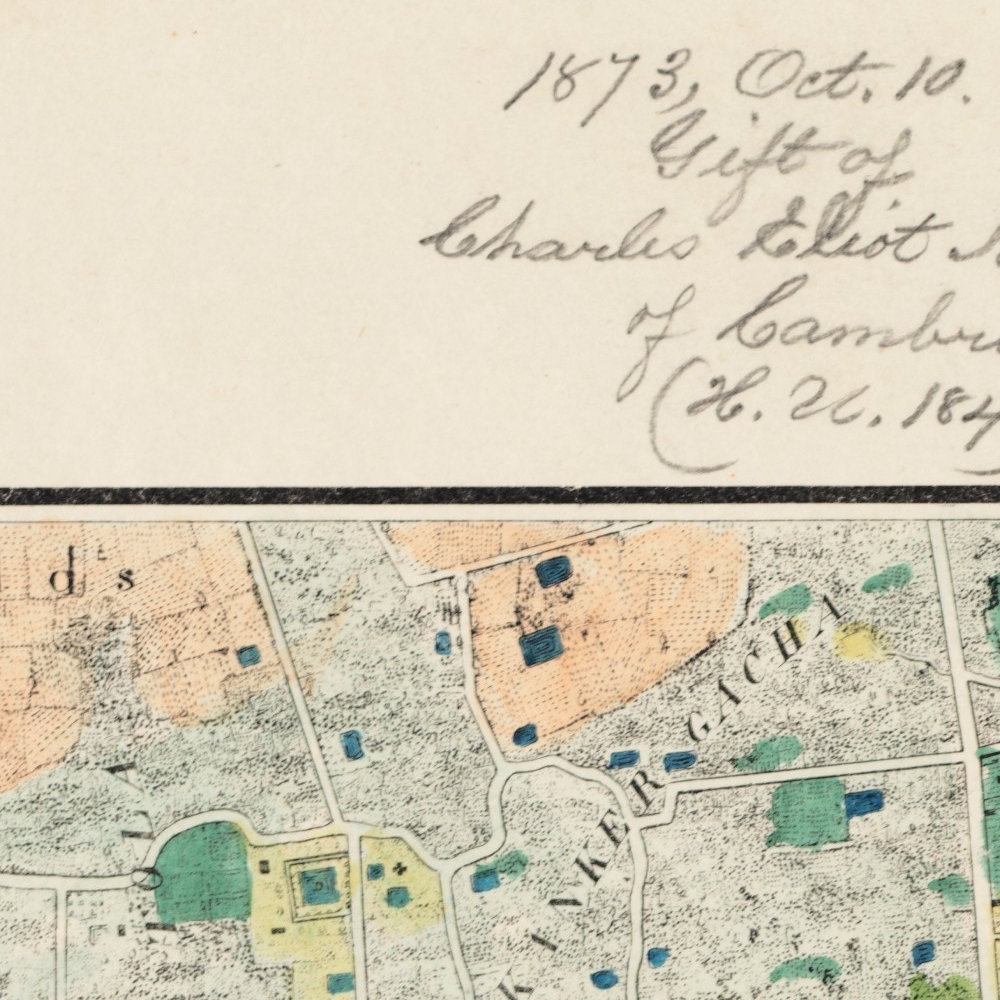 1873, Oct. 10.
Gift of
Charles Eliot
of Cambri
(H. U. 184
d s
KINKER GACHA